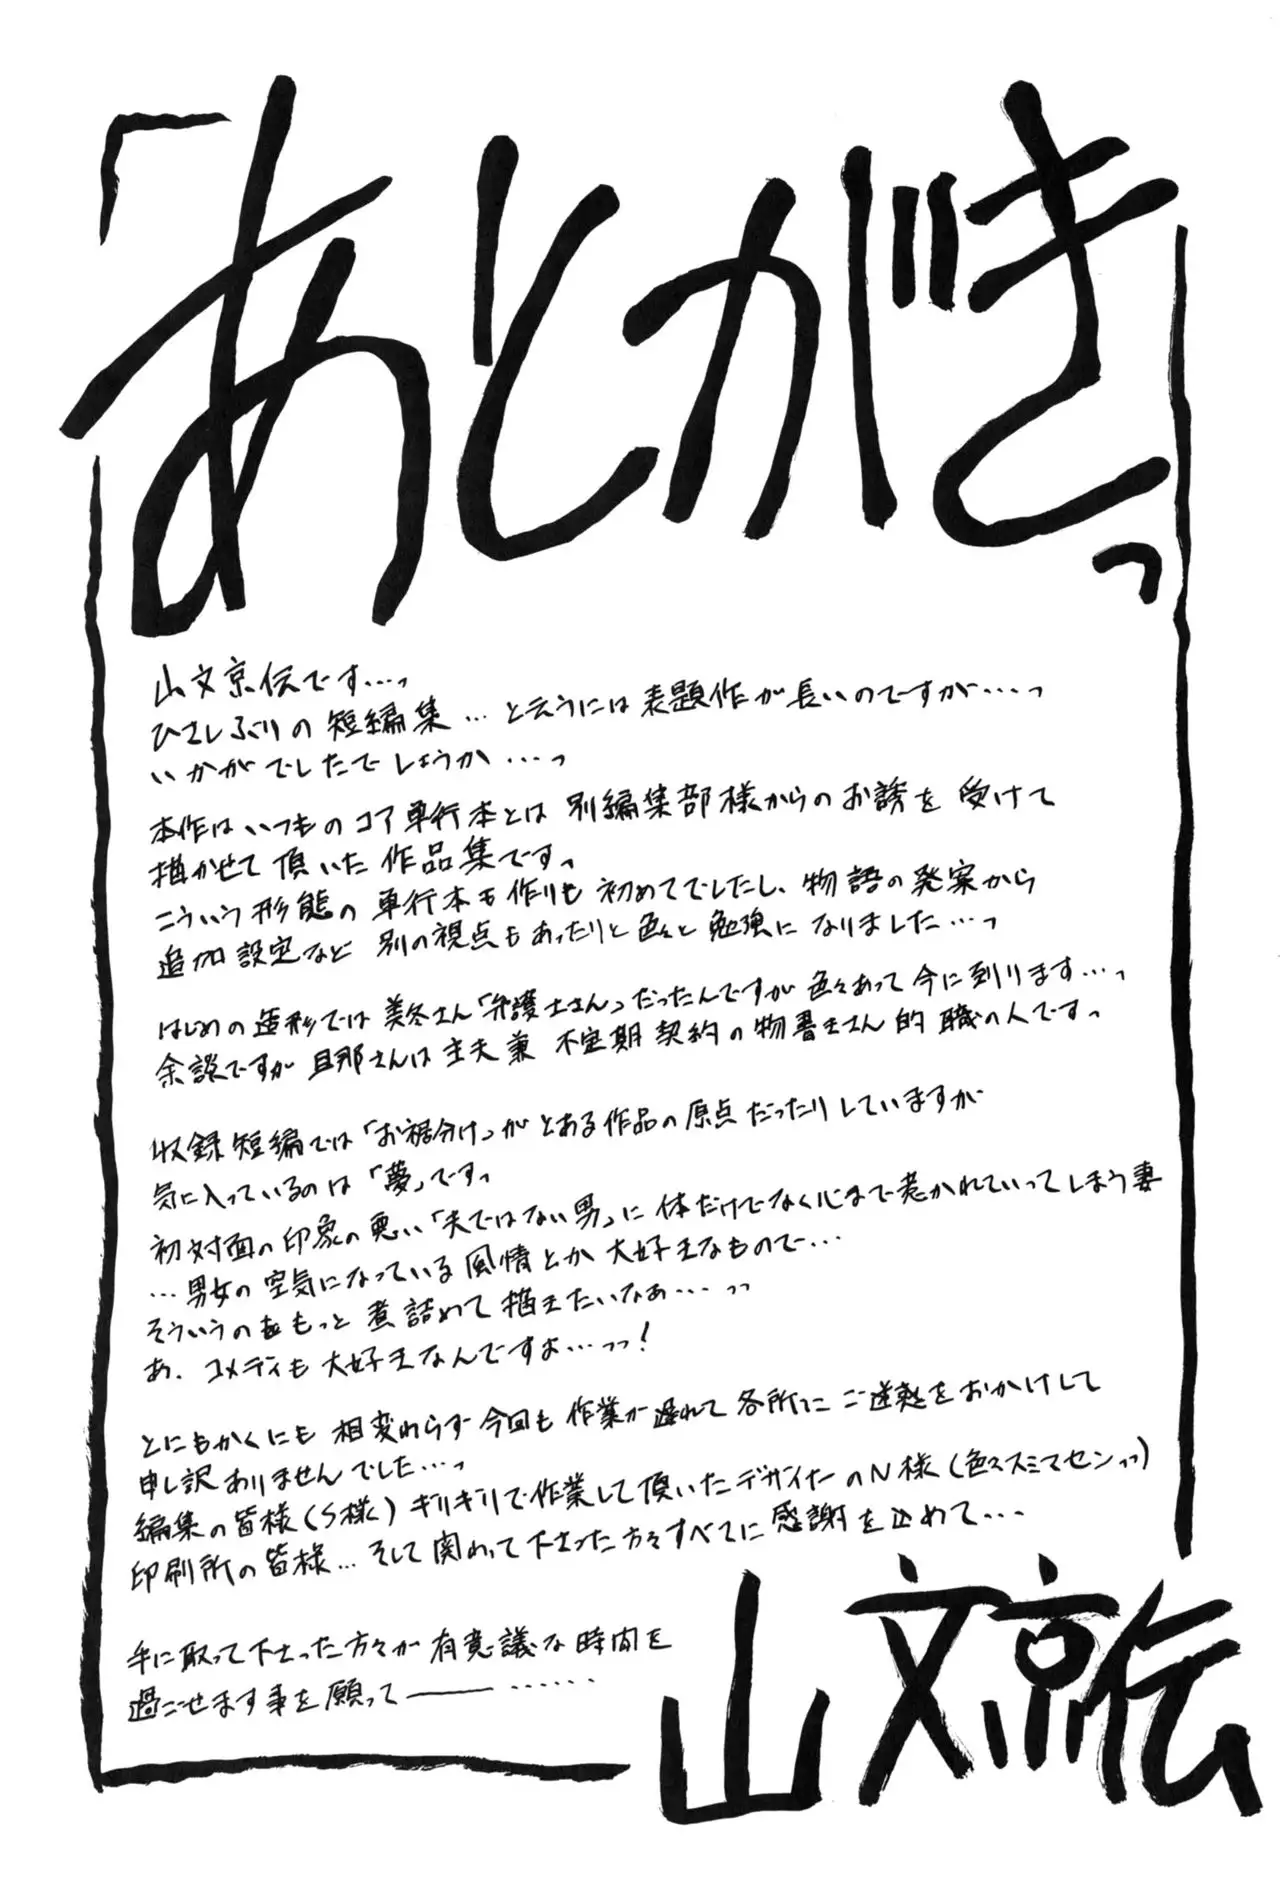 あとがきっ
山文京伝です…っ
ひさしぶりの短編集…と云うには表題作が長いのですが…っ
いかがでしたでしょうか…っ
本作はいつものコア単行本とは別編集部様からのお誘を受けて
描かせて頂いた作品集ですっ
こういう形態の単行本も作りも初めてでしたし、物語の発案から
追加設定など別の視点もあったりと色々と勉強になりました…っ
はじめの造形では美冬さん「弁護士さん」だったんですが色々あって今に到ります…っ
余談ですが旦那さんは主夫兼不定期契約の物書きさん的職の人ですっ
収録短編では「お裾分け」がとある作品の原点だったりしていますが
気に入っているのは「夢」ですっ
初対面の印象の悪い「夫ではない男」に体だけでなく心まで惹かれていってしまう妻
…男女の空気になっている風情とか大好きなもので…
そういうのをもっと煮詰めて描きたいなぁ…っっ
あ、コメディも大好きなんですよ…っっ！
とにもかくにも相変わらず今回も作業が遅れて各所にご迷惑をおかけして
申し訳ありませんでした…っ
編集の皆様（S様）ギリギリで作業して頂いたデザイナーのN様（色々スミマセンっっ）
印刷所の皆様…そして関わって下さった方々すべてに感謝を込めて…
手に取って下さった方々が有意議な時間を
過ごせます事を願って――……
山文京伝